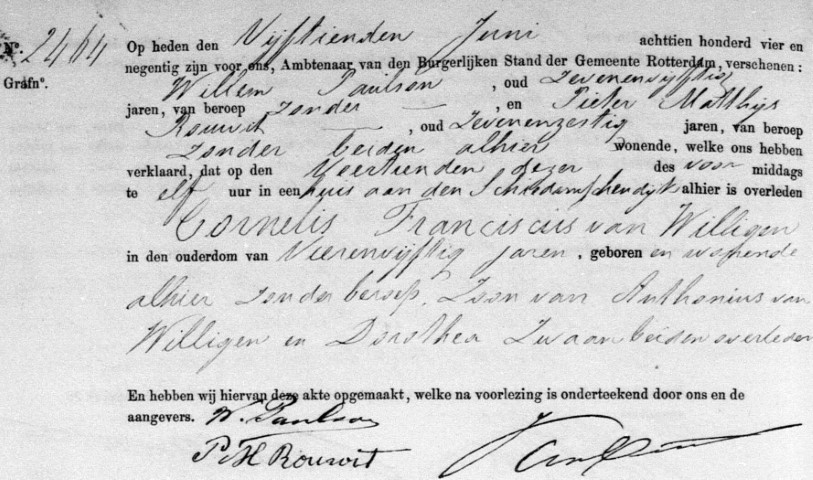 Nº. 2464 Op heden den Vijftienden Juni achttien honderd vier en
negentig zijn voor ons, Ambtenaar van den Burgerlijken Stand der Gemeente Rotterdam, verschenen:
Grafnº. Willem Paulson, oud Zevenenvijftig
jaren, van beroep Zonder —, en Pieter Matthijs
Rouwit —, oud Zevenenzestig jaren, van beroep
Zonder beiden alhier wonende, welke ons hebben
verklaard, dat op den Veertienden dezer des voor middags
te elf uur in een huis aan den Schiedamschendijk alhier is overleden
Cornelis Franciscus van Willigen
in den ouderdom van Vierenvijftig jaren, geboren en wonende
alhier zonder beroep, Zoon van Anthonius van
Willigen en Dorothea Zwaan beiden overleden
En hebben wij hiervan deze akte opgemaakt, welke na voorlezing is onderteekend door ons en de
aangevers. W. Paulson
P. M. Rouwit